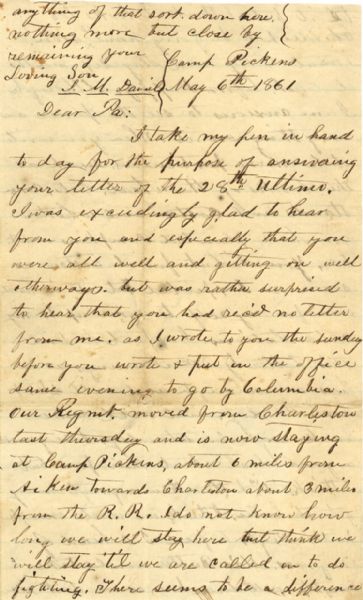 anything of that sort down here
nothing more but close by
remaining your
Loving Son
J. M. Daniel
Camp Pickens
May 6th 1861
Dear Pa:
I take my pen in hand
to day for the purpose of answering
your letter of the 28th Ultimo.
I was exceedingly glad to hear
from you and especially that you
were all well and getting on well
otherways. but was rather surprised
to hear that you had recd no letter
from me. as I wrote to you the sunday
before you wrote & put in the office
same evening to go by Columbia.
Our Regmt. moved from Charleston
last thursday and is now staying
at Camp Pickens, about 6 miles from
Aiken towards Charleston about 3 miles
from the R. R. I do not know how
long we will stay here but think we
will stay til we are called on to do
fighting. There seems to be a difference